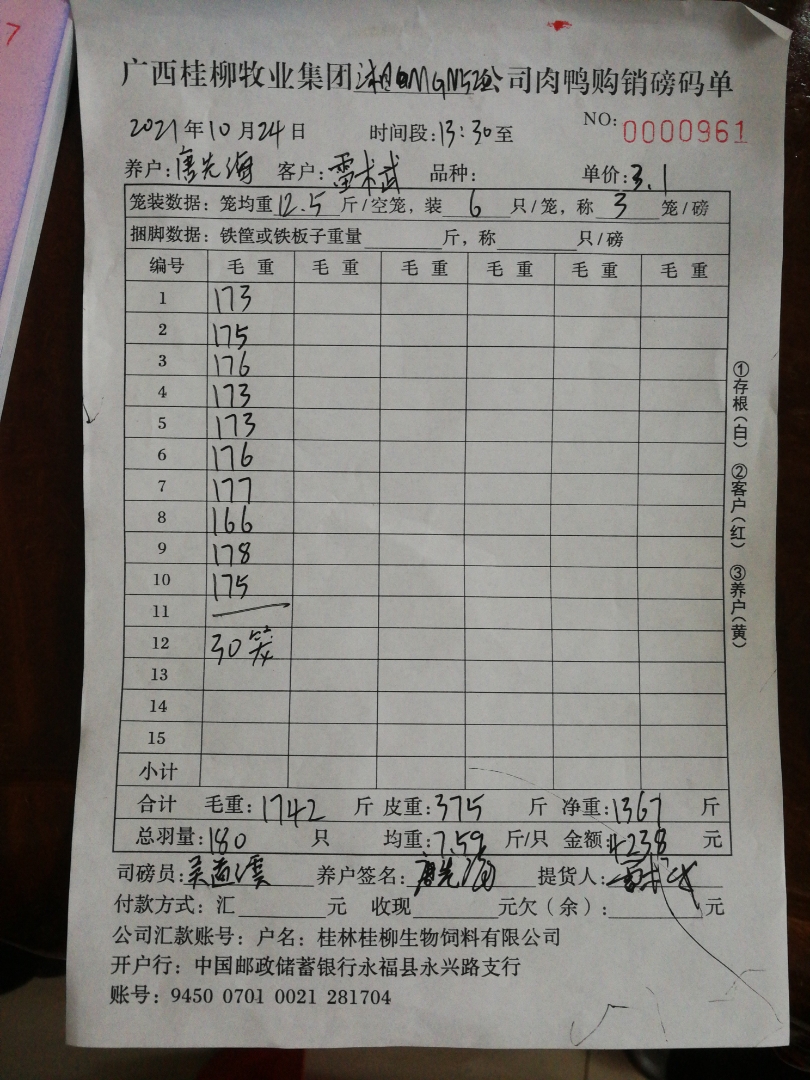 7
广西桂柳牧业集团 公司肉鸭购销磅码单
2021年10月24日 时间段:13:30至 NO: 0000961
养户:唐先海 客户:雷 武 品种: 单价:3.1
笼装数据：笼均重12.5斤/空笼，装6只/笼，称3笼/磅
捆脚数据：铁筐或铁板子重量 斤，称 只/磅
编号 毛重 毛重 毛重 毛重 毛重 毛重
1 173
2 175
3 176
4 173
5 173
6 176
7 177
8 166
9 178
10 175
11
12 30笼
13
14
15
小计
合计 毛重:1742斤 皮重:375斤 净重:1367斤
总羽量:180只 均重:7.59斤/只 金额:4238元
司磅员: 养户签名:唐先海 提货人:
付款方式：汇 元 收现 元欠（余）: 元
公司汇款账号：户名：桂林桂柳生物饲料有限公司
开户行：中国邮政储蓄银行永福县永兴路支行
账号：9450 0701 0021 281704
①存根(白) ②客户(红) ③养户(黄)